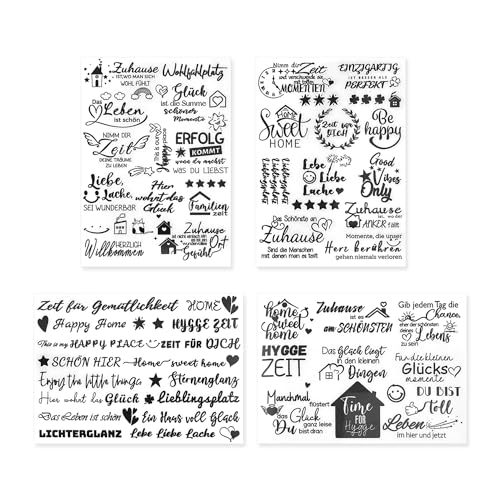 Zuhause
IST, WO MAN SICH
WOHL FÜHLT
Wohlfühlplatz
Das
Leben
ist schön
GLÜCK
ist die Summe
schöner
Momente
NIMM DIR
Zeit
DEINE TRÄUME
ZU LEBEN
This is our
happy
place
ERFOLG
KOMMT
wenn du machst
WAS DU LIEBST
Liebe,
Lache,
SEI WUNDERBAR
Hier
wohnt das
Glück
Familien
zeit
HERZLICH
Willkommen
Zuhause
ist nicht einfach ein
Ort
es ist ein
wundervolles
Gefühl
Nimm dir
Zeit
MOMENTEN
EINZIGARTIG
IST BESSER ALS
PERFEKT
Home
Sweet
HOME
Zeit für
DICH
Be
happy
Lieblingsplatz
Lieblingsplatz
Lieblingsplatz
Lebe
Liebe
Lache
Good
Vibes
Only
Das Schönste an
Zuhause
Sind die Menschen
mit denen man es teilt
Zuhause
ist, wo der
ANKER
fällt
Momente, die unser
Herz berühren
gehen niemals verloren
Zeit für Gemütlichkeit
HOME
Happy Home
HYGGE ZEIT
This is my HAPPY PLACE
ZEIT FÜR DICH
SCHÖN HIER
Home sweet home
Enjoy the little things
Sternenglanz
Hier wohnt das Glück
Lieblingsplatz
Das Leben ist schön
Ein Haus voll Glück
LICHTERGLANZ
Lebe Liebe Lache
home
sweet
home
Zuhause
ist es
am SCHÖNSTEN
Gib jedem Tag die
Chance
der schönste
deines
Lebens
zu sein
HYGGE
ZEIT
Das Glück liegt
in den kleinen
Dingen
Für die kleinen
Glücks
momente
Manchmal
flüstert
das
Glück
ganz leise
bist dran
Du
Time
FOR
Hygge
DU BIST
toll
Leben
im hier und jetzt